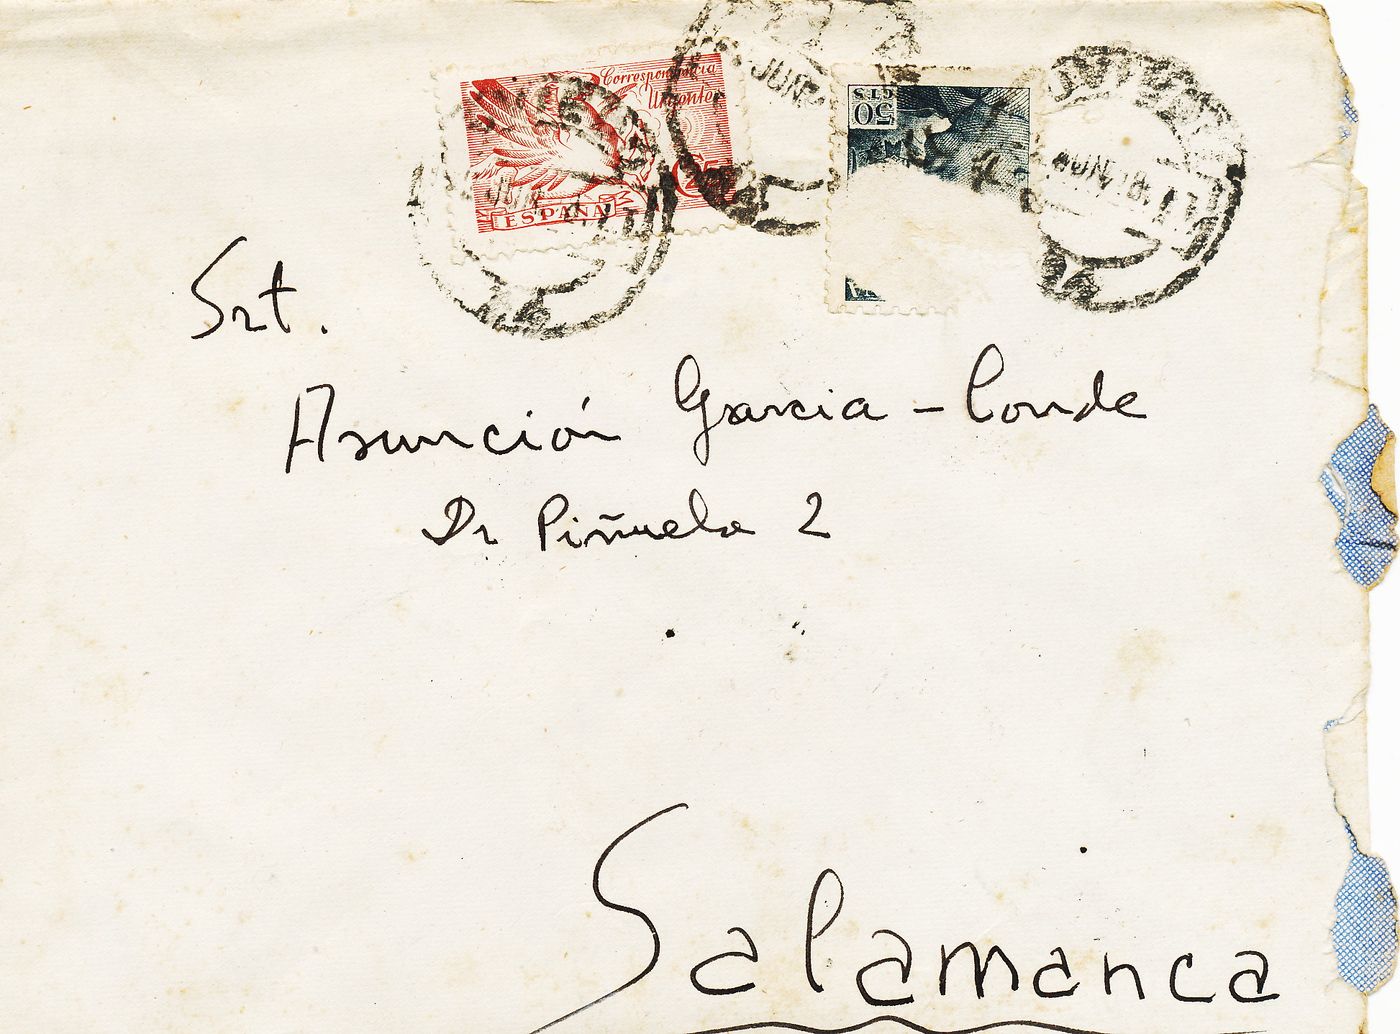 Correspondencia
Urgente
25
ESPAÑA
JUN
50
CTS
JUN 18
Srt.
Asunción Garcia - Conde
Dr Piñuela 2
Salamanca